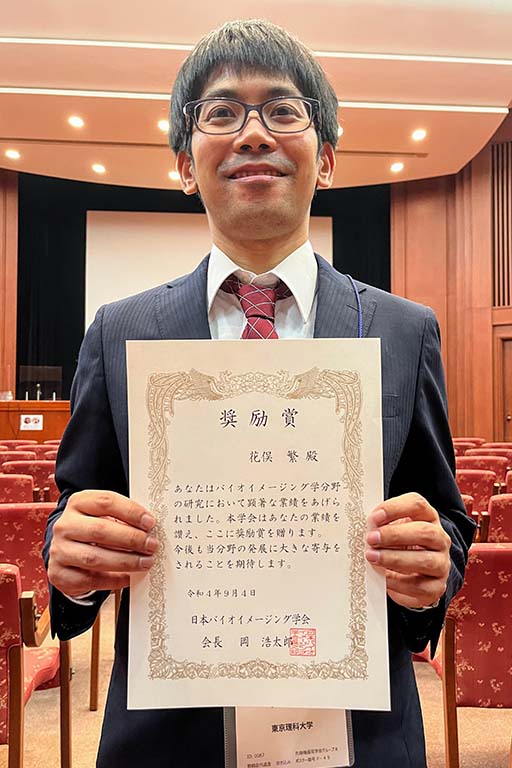 奨励賞
花俣 繁 殿
あなたはバイオイメージング学分野
の研究において顕著な業績をあげら
れました。本学会はあなたの業績を
讃え、ここに奨励賞を贈ります。
今後も当分野の発展に大きな寄与を
されることを期待します。
令和4年9月4日
日本バイオイメージング学会
会長 岡 浩太郎
東京理科大学